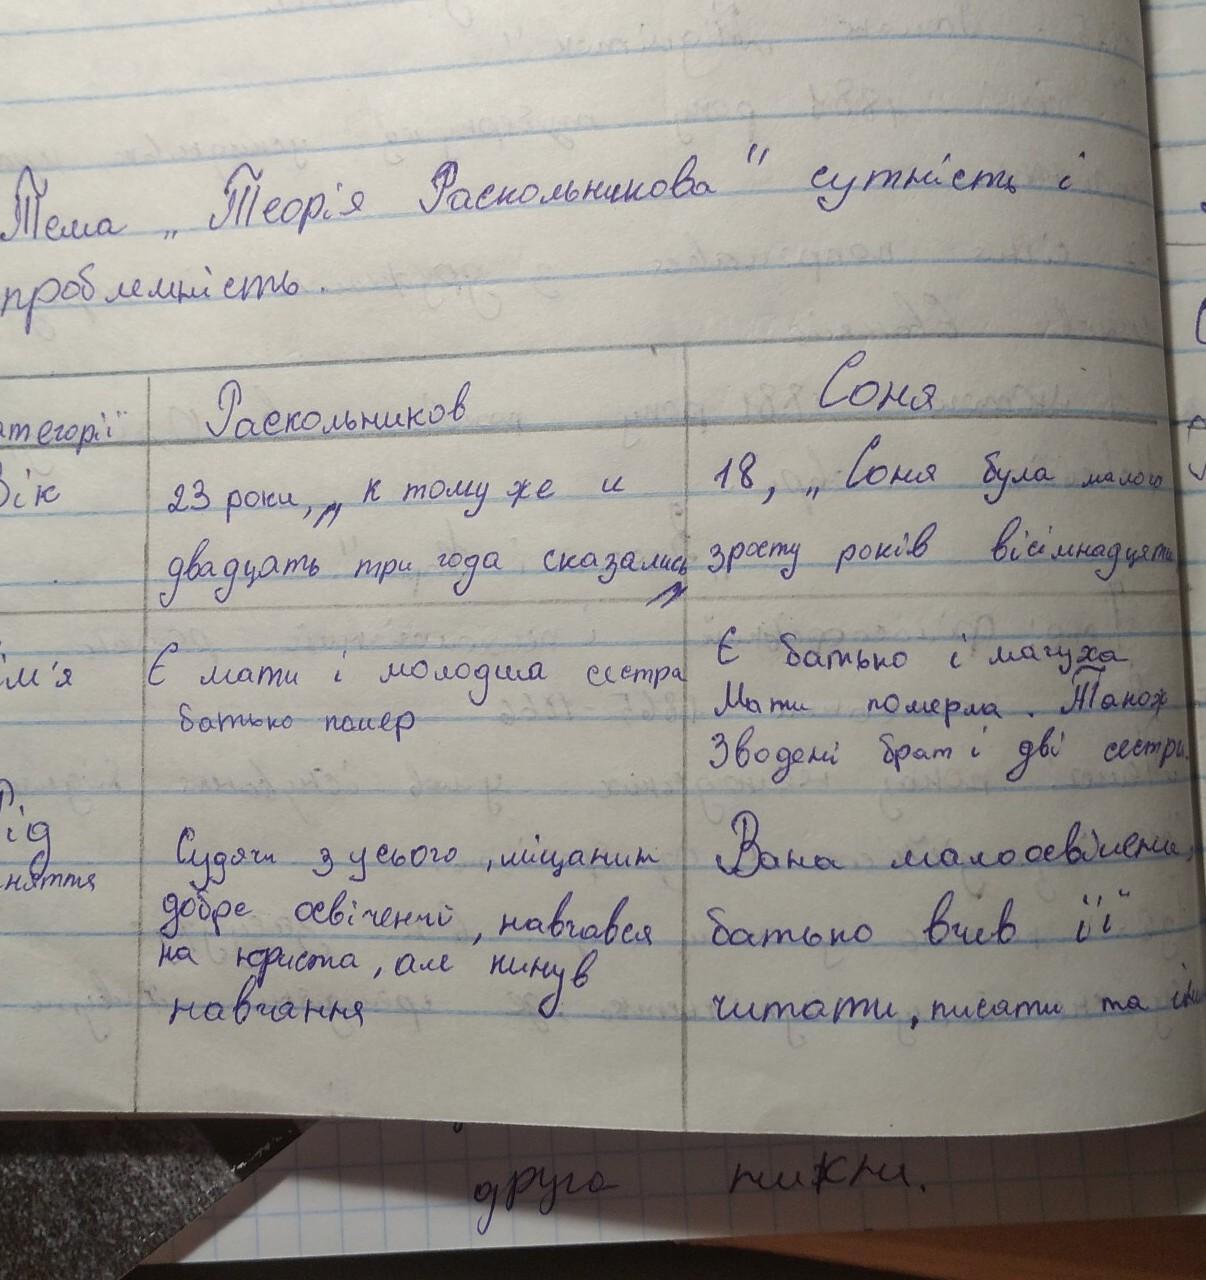 Тема „Теорія Раскольникова" сутність і
проблемність.
атегорії Раскольников Соня
Вік 23 роки, „к тому же и 18, „Соня була малого
двадцать три года сказались" зросту років вісімнадцяти
ім'я Є мати і молодша сестра Є батько і мачуха
батько помер Мати померла. Також
Зводені брат і дві сестри.
Рід Судячи з усього, міщанин Вона малоосвічена,
няття добре освічений, навчався батько вчив її
на юриста, але кинув
навчання читати, писати та
друга